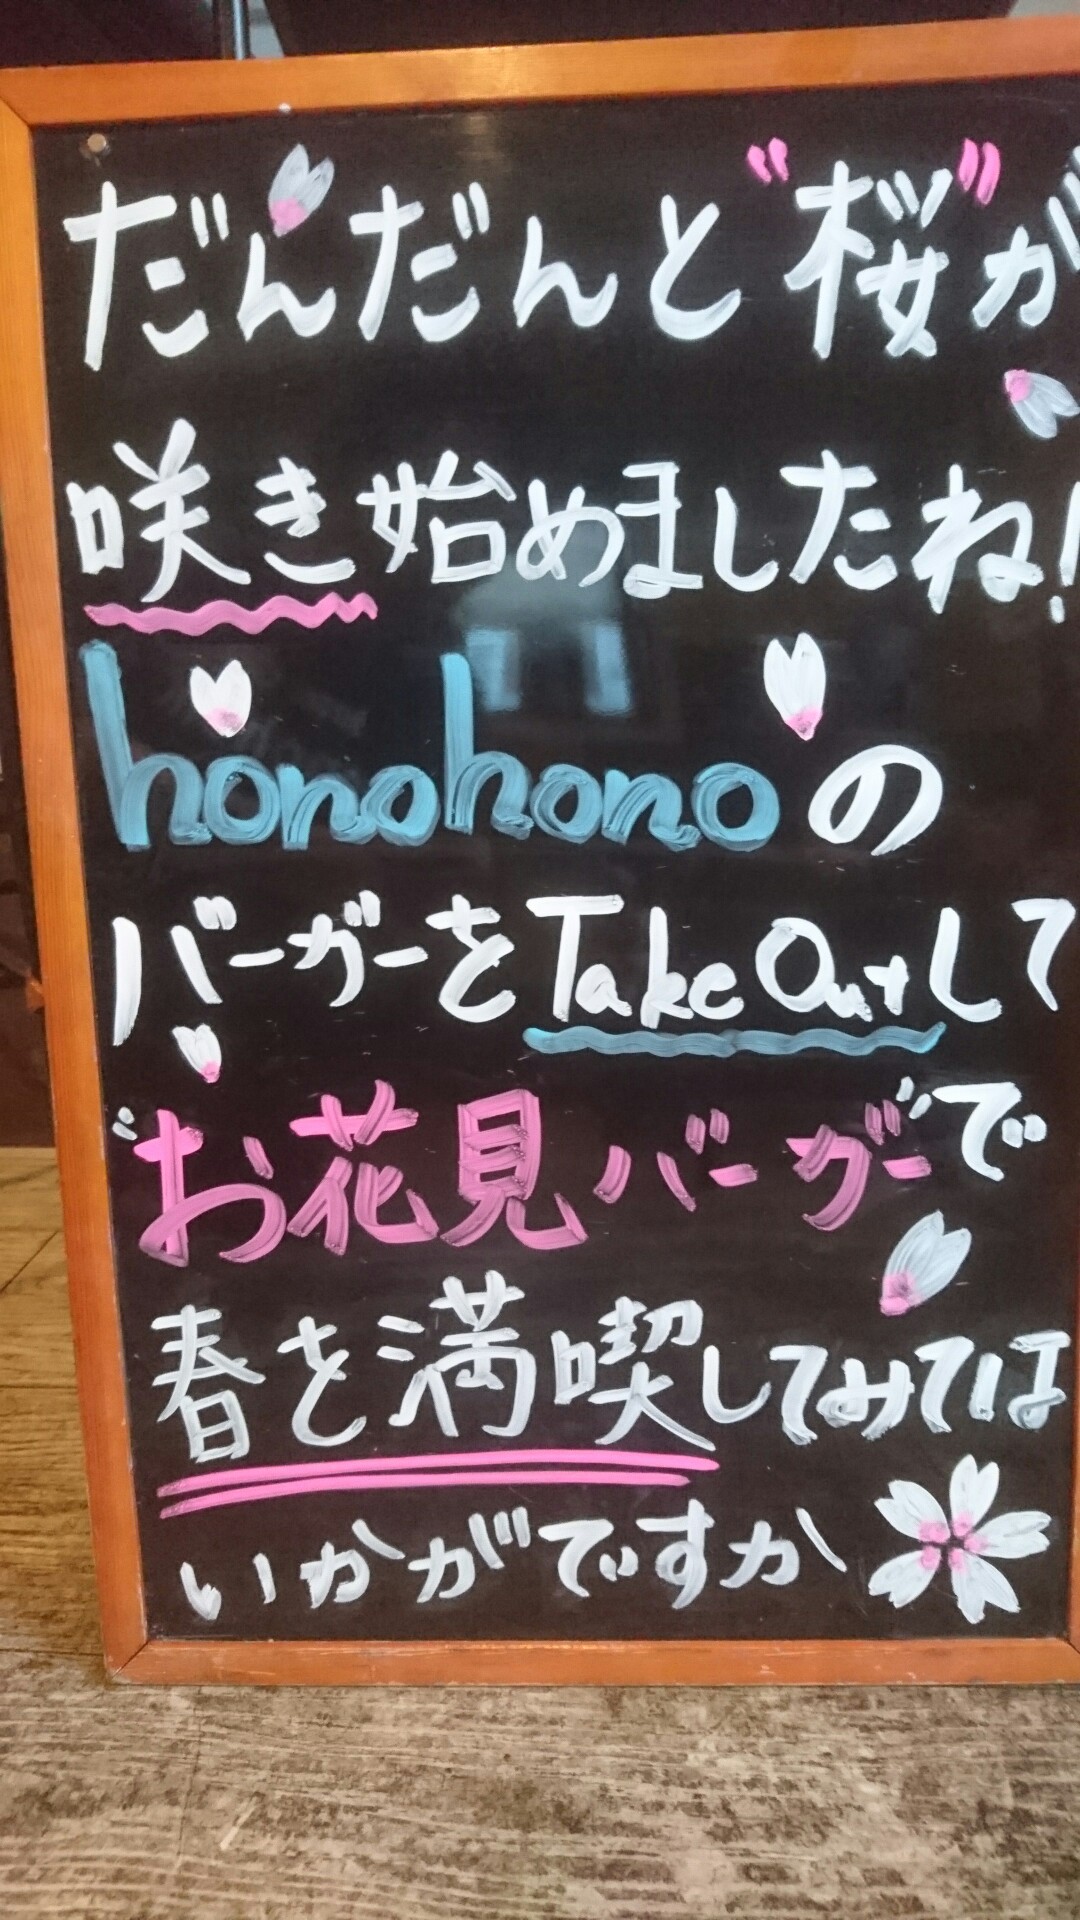 だんだんと"桜"が
咲き始めましたね!
honohonoの
バーガーをTake Outして
"お花見バーガー"で
春を満喫してみては
いかがですか